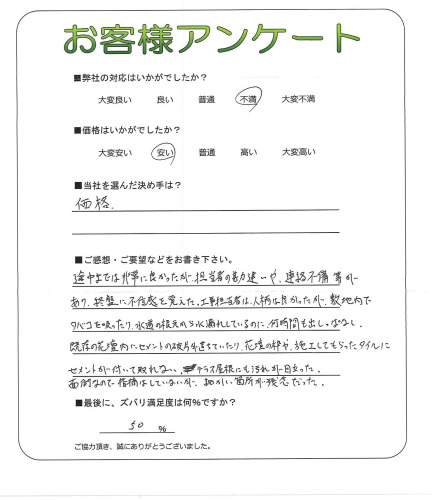 お客様アンケート
■弊社の対応はいかがでしたか?
大変良い 良い 普通 不満 大変不満
■価格はいかがでしたか?
大変安い 安い 普通 高い 大変高い
■当社を選んだ決め手は?
価格.
■ご感想・ご要望などをお書き下さい。
途中までは非常に良かったが、担当者の勘違いや、連絡不備等が
あり、終盤に不信感を覚えた。工事担当者は、人柄は良かったが、敷地内で
タバコを吸ったり、水道の根元から水漏れしているのに、何時間も出しっぱなし。
既存の花壇内にセメントの破片が落ちていたり、花壇の枠や、施工してもらったタイルに
セメントが付いて取れない。テラス屋根にも汚れが目立った。
面倒なので指摘はしていないが、細かい箇所が残念だった。
■最後に、ズバリ満足度は何%ですか?
50 %
ご協力頂き、誠にありがとうございました。